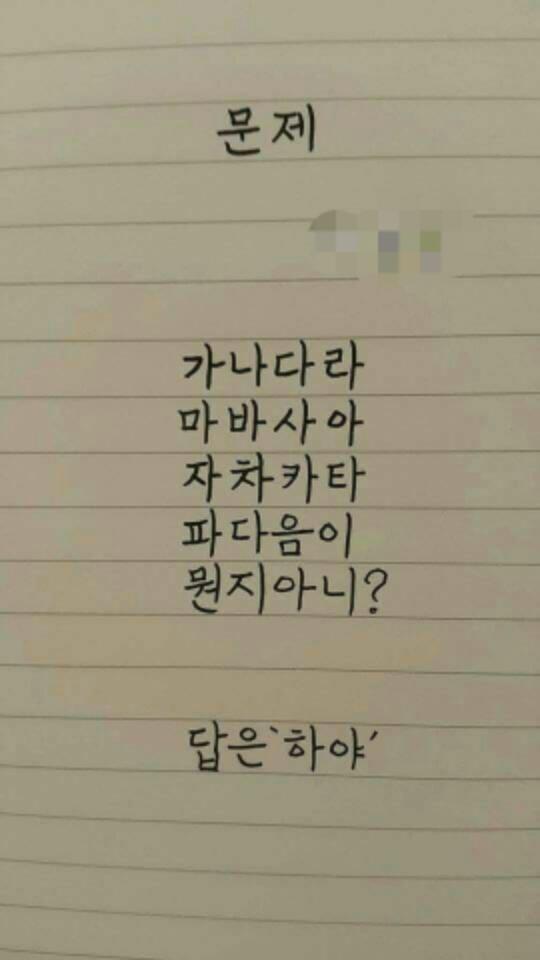 문제
가나다라
마바사아
자차카타
파다음이
뭔지아니?
답은 '하야'